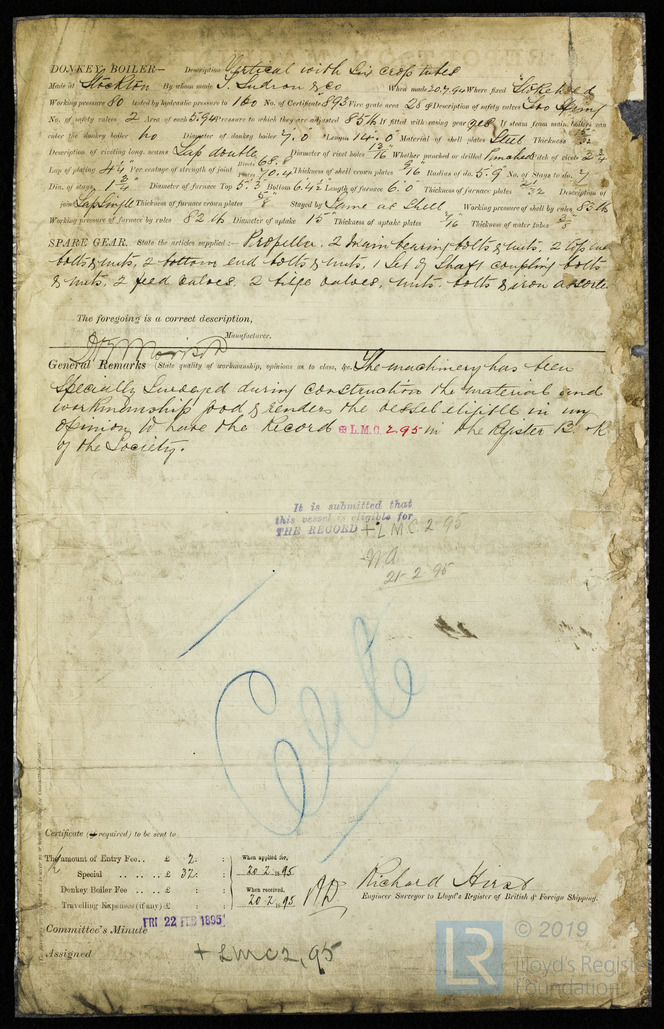 DONKEY BOILER— Description Vertical with Six cross tubes
Made at Stockton By whom made T. Sudron & Co When made 20.7.94 Where fixed Stokehold
Working pressure 80 tested by hydraulic pressure to 160 No. of Certificate 893 Fire grate area 23 Description of safety valves Spring
No. of safety valves 2 Area of each 5.94 Pressure to which they are adjusted 85 lb If fitted with easing gear yes If steam from main boilers can
enter the donkey boiler no Diameter of donkey boiler 7.0" Length 14.0" Material of shell plates Steel Thickness 15/32
Description of riveting long. seams Lap double Diameter of rivet holes 13/16" Whether punched or drilled Punched Pitch of rivets 2 3/4
Lap of plating 4 1/4" Per centage of strength of joint Rivets 68.8 Plates 70.4 Thickness of shell crown plates /16 Radius of do. 5.9 No. of Stays to do. 7
Dia. of stays 1 3/4" Diameter of furnace Top 5.3" Bottom 6.4 1/2 Length of furnace 6.0 Thickness of furnace plates /32 Description of
joint Lap Single Thickness of furnace crown plates 5/8" Stayed by Same as Shell Working pressure of shell by rules 83 lb
Working pressure of furnace by rules 82 lb Diameter of uptake 15" Thickness of uptake plates 7/16" Thickness of water tubes 3/8
SPARE GEAR. State the articles supplied:— Propeller, 2 main bearing bolts & nuts, 2 top end
bolts & nuts, 2 bottom end bolts & nuts, 1 Set of Shaft coupling bolts
& nuts, 2 feed valves, 2 bilge valves, nuts, bolts & iron assorted
The foregoing is a correct description,
Manufacturer.
General Remarks (State quality of workmanship, opinions as to class, &c. The machinery has been
Specially Surveyed during construction the material and
workmanship good & renders the vessel eligible in my
opinion to have the Record L.M.C. 2.95 in the Register Book
of the Society.
It is submitted that
this vessel is eligible for
THE RECORD + L M C 2-95
21-2-95
Certificate (required) to be sent to
The amount of Entry Fee .. £ 2 : : When applied for,
Special .. .. .. £ 32 : : 20.2.1895
Donkey Boiler Fee .. £ : : When received,
Travelling Expenses (if any) £ : : 20.2.1895
Richard Hirst
Engineer Surveyor to Lloyd's Register of British & Foreign Shipping.
Committee's Minute FRI 22 FEB 1895
Assigned + LMC 2,95
LR © 2019
Lloyd's Register
Foundation